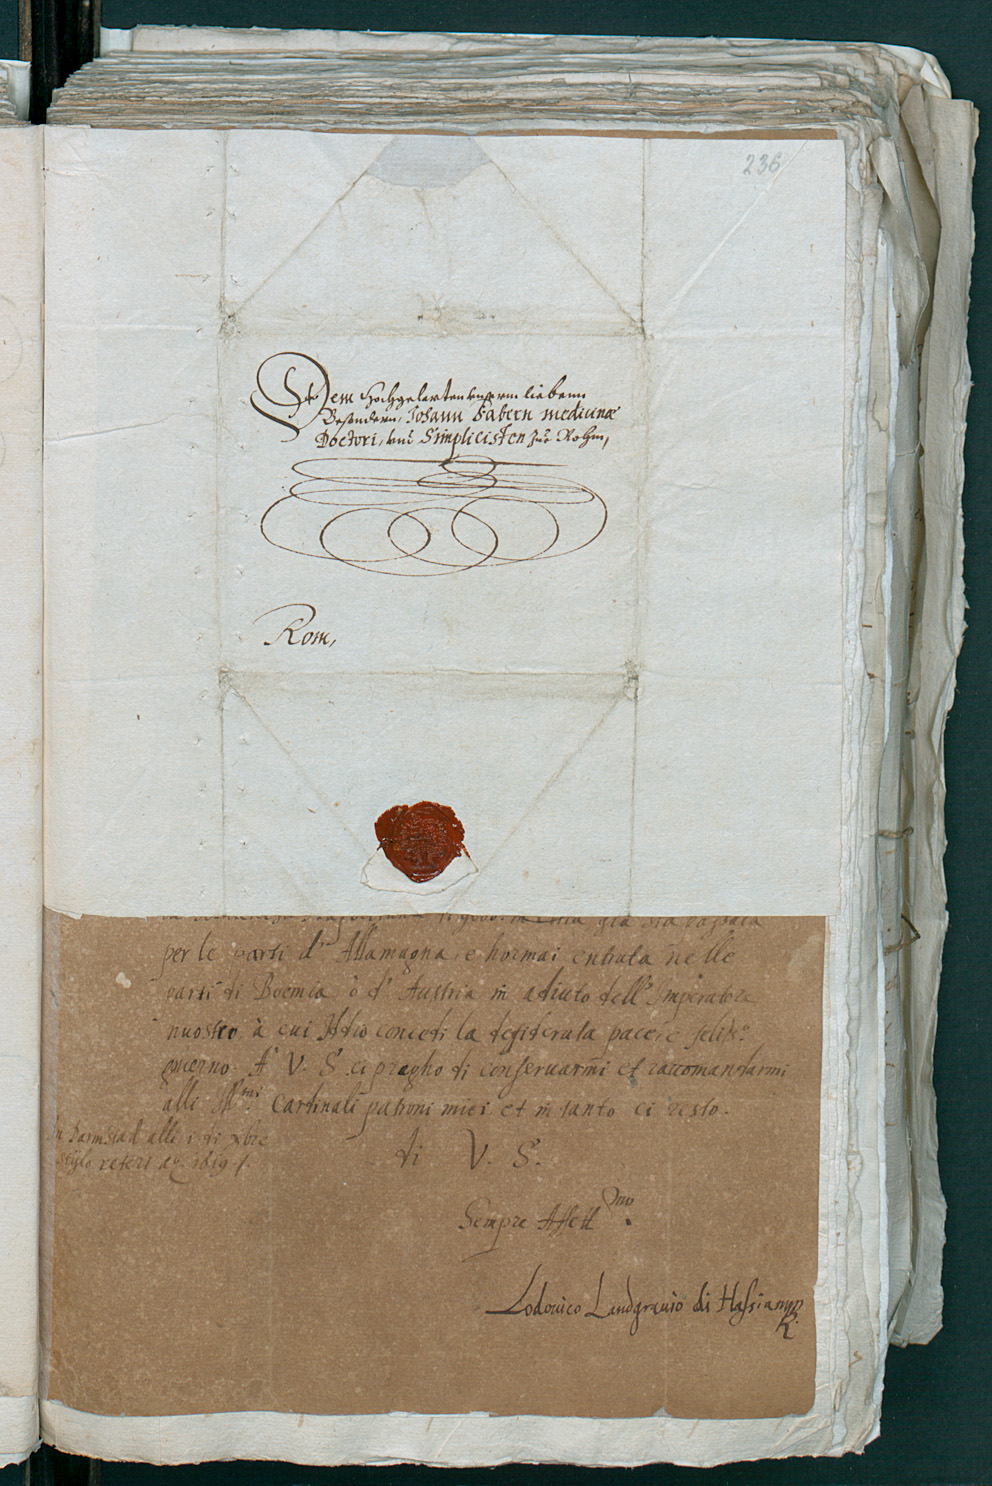 236
Dem Hochgelerten unserm liebenn
Besondern, Johann Fabern medicinæ
Doctori, und Simplicisten zue Rohm,
Rom,
già sia passata
per le parti d' Allamagna, e hormai entrata nelle
parti di Boemia, ò d' Austria in adiuto dell' Imperatore
nuostro à cui Iddio concedi la desiderata pace e feliss.º
guerno. A' V. S. ci pragho di conservarmi et raccomandarmi
alli Ill.mi Cardinali patroni miei et in tanto ci resto.
Darmstad alli 1 di xbre
stylo veteri aº. 1619
di V. S.
Sempre Affett.mo
Lodovico Landgravio di Hassia